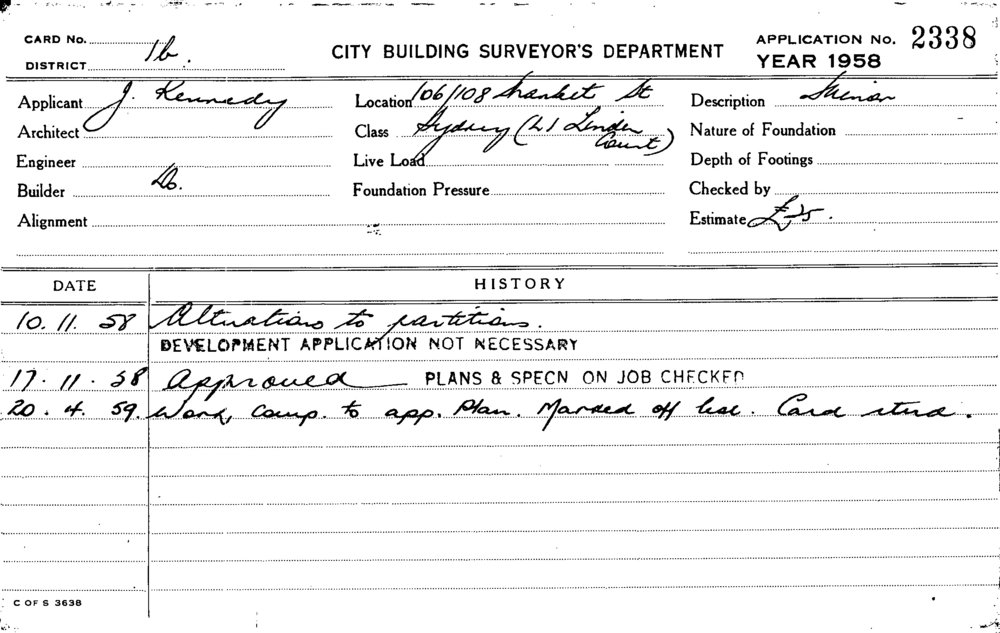 CARD No.
DISTRICT 1b.
CITY BUILDING SURVEYOR'S DEPARTMENT
APPLICATION No. 2338
YEAR 1958
Applicant J. Kennedy
Architect
Engineer
Builder Do.
Alignment
Location 106/108 Market St
Class Sydney (21 Court)
Live Load
Foundation Pressure
Description Minor
Nature of Foundation
Depth of Footings
Checked by
Estimate £25.
DATE HISTORY
10. 11. 58 Alterations to partitions.
DEVELOPMENT APPLICATION NOT NECESSARY
17. 11. 58 Approved PLANS & SPECN ON JOB CHECKED
20. 4. 59. Work, comp. to app. Plan. Marked off list. Card retnd.
C OF S 3638